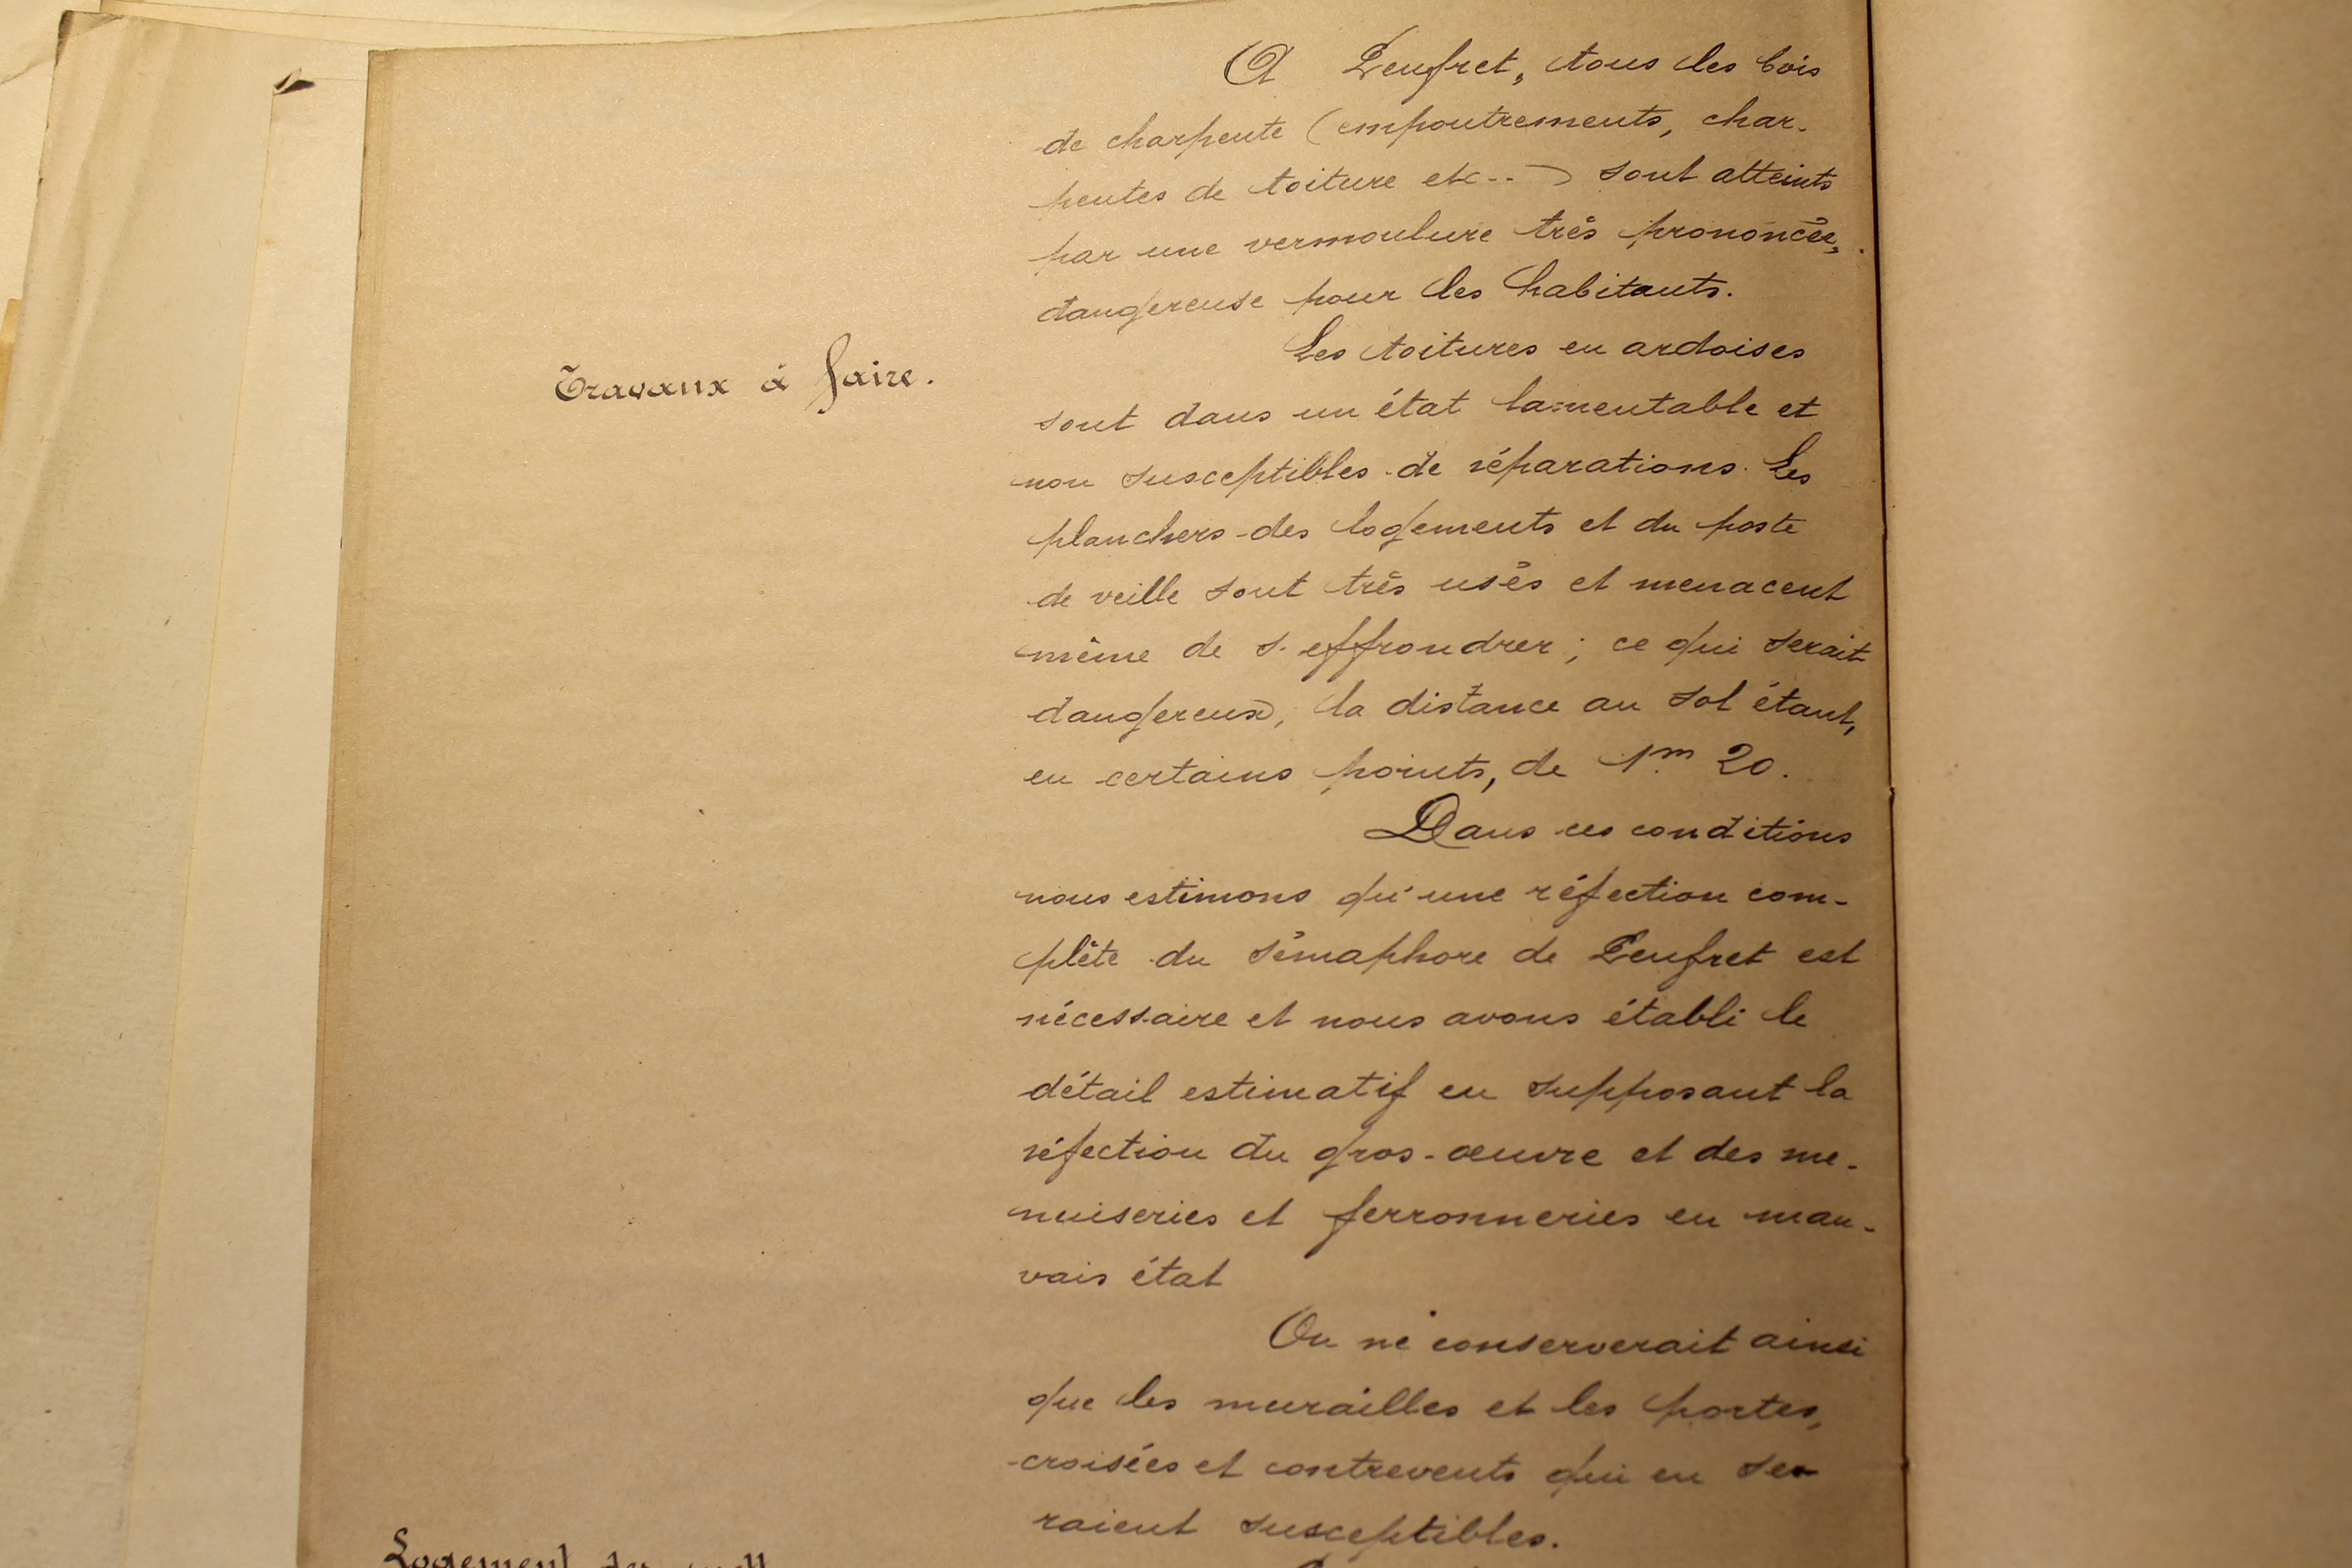 A Penfret, tous les bois
de charpente (empoutrements, char-
pentes de toiture etc..) sont atteints
par une vermoulure très prononcée,
dangereuse pour les habitants.
Travaux à faire.
Les toitures en ardoises
sont dans un état lamentable et
non susceptibles de réparations. Les
planchers des logements et du poste
de veille sont très usés et menacent
même de s'effrondrer ; ce qui serait
dangereux, la distance au sol étant,
en certains points, de 1m 20.
Dans ces conditions
nous estimons qu'une réfection com-
plète du sémaphore de Penfret est
nécessaire et nous avons établi le
détail estimatif en supposant la
réfection du gros-œuvre et des me-
nuiseries et ferronneries en mau-
vais état
On ne conserverait ainsi
que les murailles et les portes,
croisées et contrevents qui en se-
raient susceptibles.
Logement